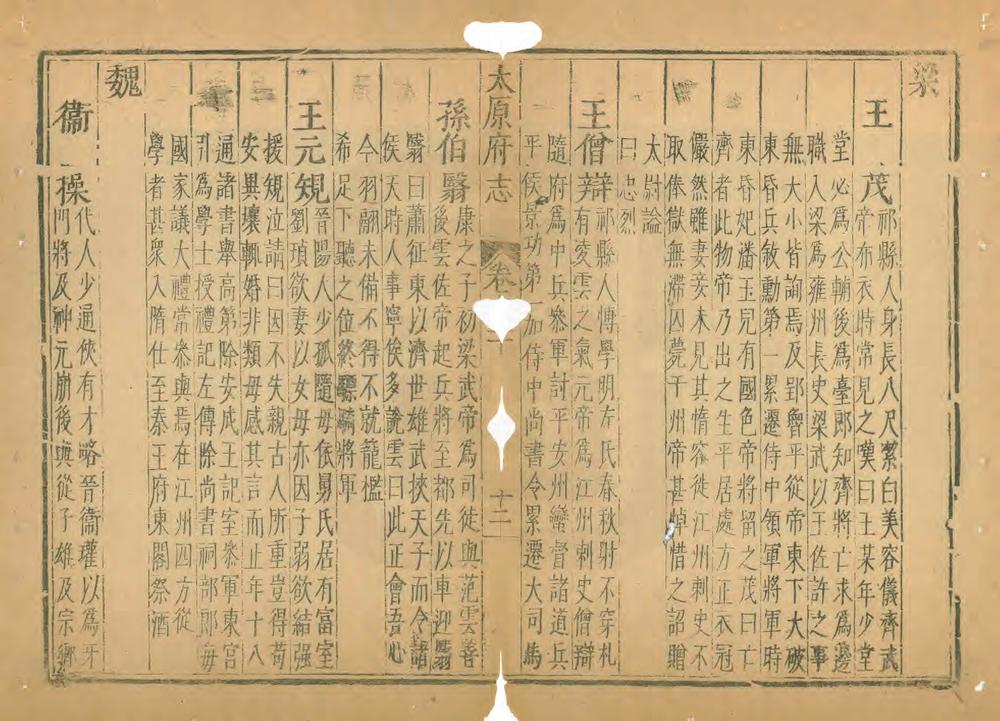 梁
王茂祁縣人身長八尺潔白美容儀齊武
帝布衣時常見之嘆曰王某年少堂
堂必爲公輔後爲臺郎知齊將亡求爲邊
職入梁爲雍州長史梁武以王佐許之事
無大小皆詢焉及郢魯平從帝東下大破
東昏兵敘勳第一累遷侍中領軍將軍時
東昏妃潘玉兒有國色帝將留之茂曰亡
齊者此物帝乃出之生平居處方正衣冠
儼然雖妻妾未見其惰容徙江州刺史不
取俸獄無滯囚薨于州帝甚悼惜之詔贈
太尉諡
曰忠烈
王僧辯祁縣人博學明左氏春秋射不穿札
有凌雲之氣元帝爲江州刺史僧辯
隨府爲中兵參軍討平安州蠻督諸道兵
平侯景功第一加侍中尚書令累遷大司馬
太原府志 卷 十二
孫伯翳康之子初梁武帝爲司徒與范雲善
後雲佐帝起兵將至都先以車迎翳
翳曰蕭征東以濟世雄武挾天子而令諸
侯天時人事寧俟多說雲曰此正會吾心
今羽翮未備不得不就籠檻
希足下聽之位終驃騎將軍
王元規晉陽人少孤隨母依舅氏居有富室
劉瑱欲妻以女母亦因子弱欲結強
援規泣請曰因不失親古人所重豈得苟
安異壤輒婚非類母感其言而止年十八
通諸書舉高第除安成王記室參軍東宮
引爲學士授禮記左傳除尚書祠部郎每
國家議大禮常參與焉在江州四方從
學者甚衆入隋仕至秦王府東閣祭酒
魏
衞操代人少通俠有才略晉衞瓘以爲牙
門將及神元崩後與從子雄及宗鄉